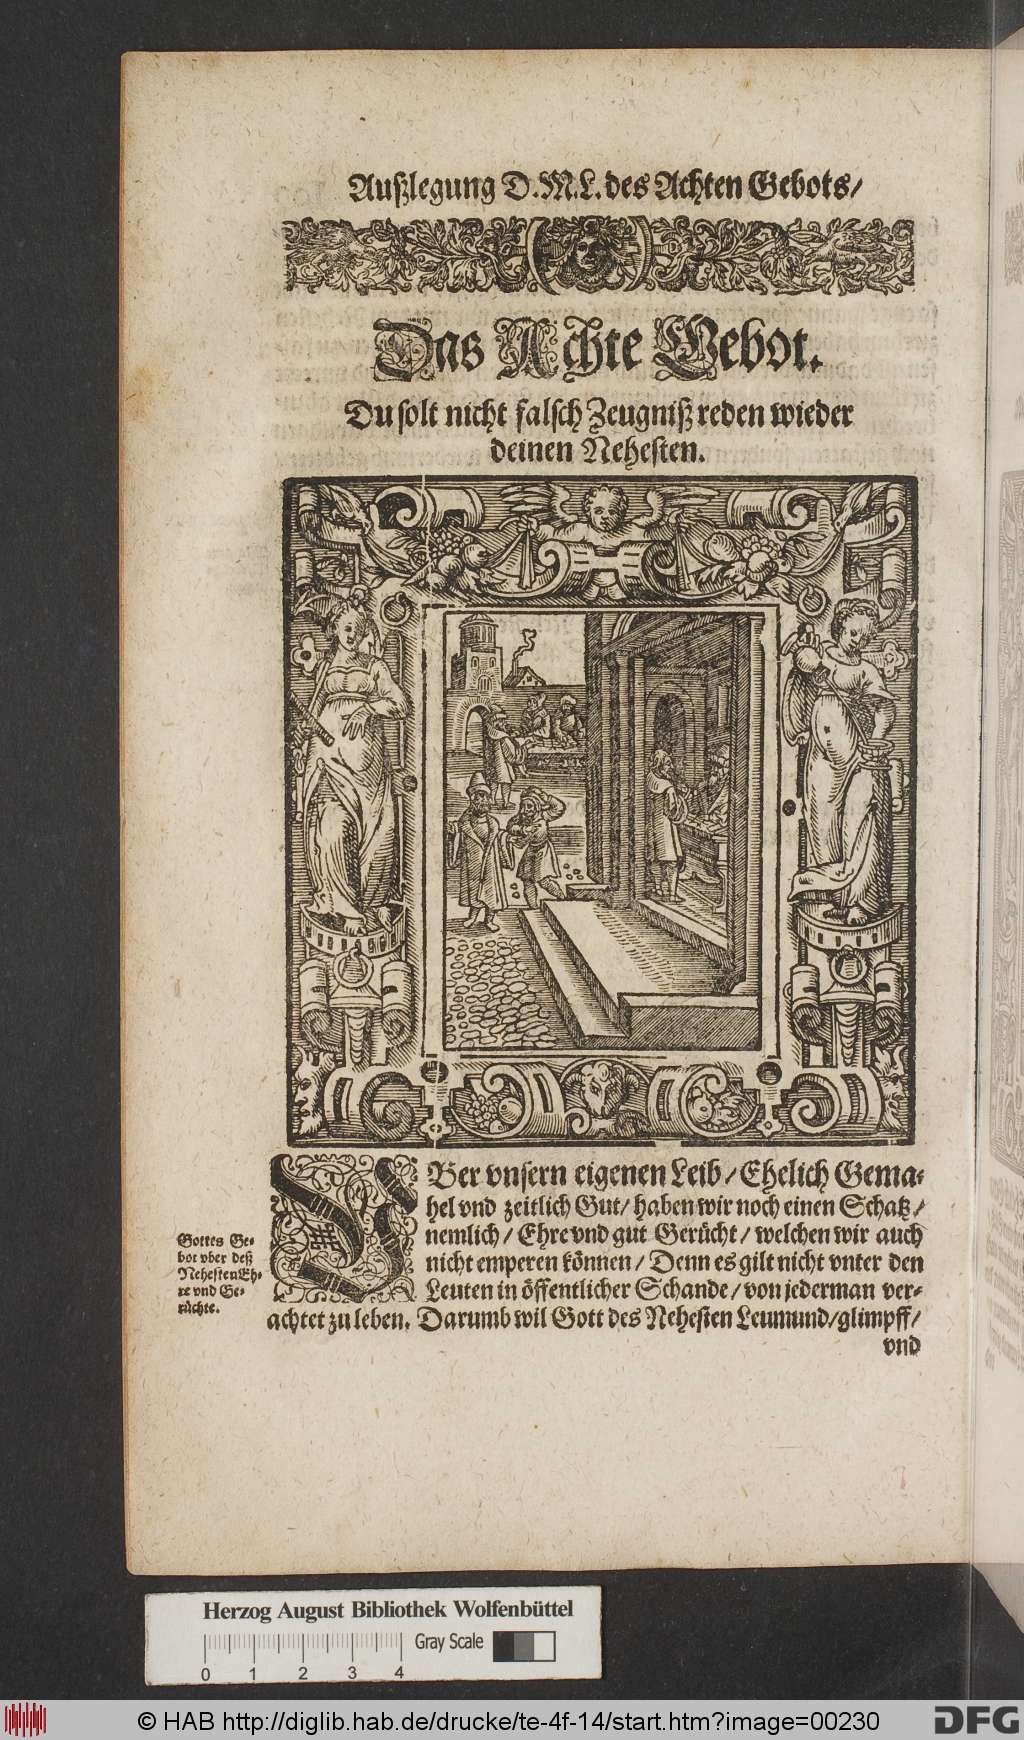 Außlegung D. M. L. des Achten Gebots/
Das Achte Gebot.
Du solt nicht falsch Zeugniß reden wieder
deinen Nehesten.
VBer vnsern eigenen Leib/ Ehelich Gema-
hel vnd zeitlich Gut/ haben wir noch einen Schatz/
nemlich/ Ehre vnd gut Gerücht/ welchen wir auch
nicht emperen können/ Denn es gilt nicht vnter den
Leuten in öffentlicher Schande/ von jederman ver-
achtet zu leben. Darumb wil Gott des Nehesten Leumund/ glimpff/
vnd
Gottes Ge-
bot vber deß
Nehesten Eh-
re vnd Ge-
rüchte.
Herzog August Bibliothek Wolfenbüttel
Gray Scale
0 1 2 3 4
© HAB http://diglib.hab.de/drucke/te-4f-14/start.htm?image=00230
DFG